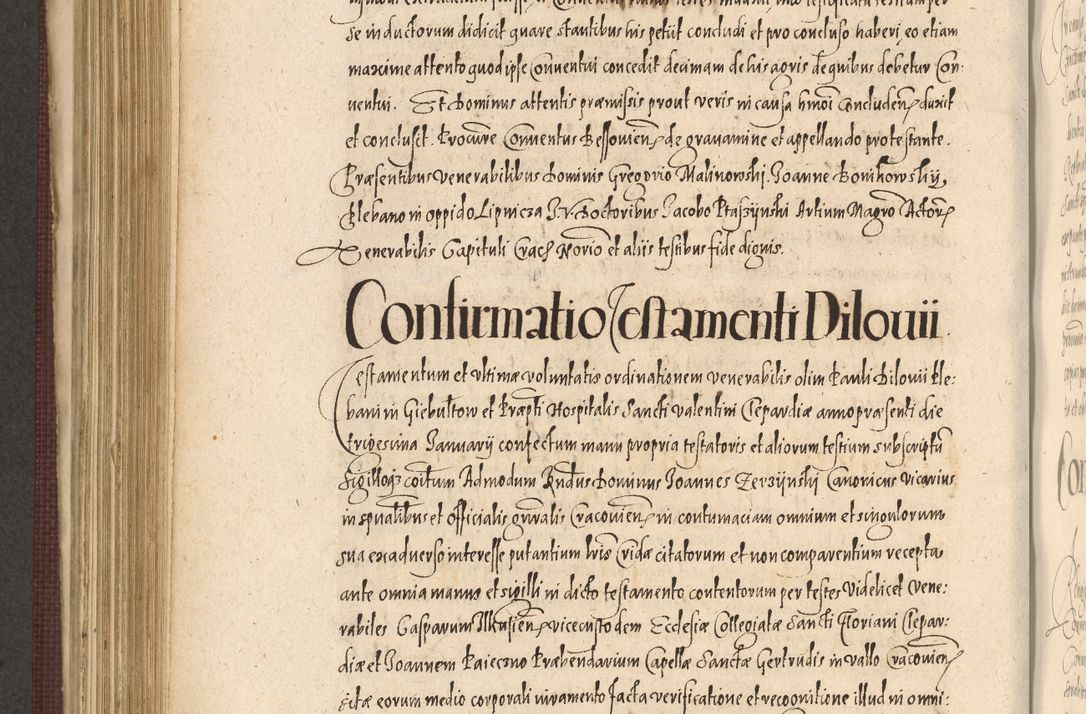 se inductorum didicit quare stantibus his petiit concludi et pro concluso haberi, eo etiam
maxime attento quod ipse Conventui concedit decimam de his agris de quibus debetur Con:
ventui. Et Dominus attentis præmissis prout veris in causa hmoi concludend duxit
et conclusit. Procure Conventus Bessovien de gravamine et appellando protestante.
Præsentibus venerabilibus Dominis Gregorio Malinowski. Joanne Bonikowskÿ
Plebano in oppido Lipnicza J.V. Doctoribus Jacobo Ptaszÿnski Artium Magro Actor
Venerabilis Capituli Crac Norio et aliis testibus fide dignis.
Confirmatio Testamenti Dilouii.
Testamentum et ultimæ voluntatis ordinationem venerabilis olim Pauli Dilovii Ple:
bani in Giebułtow et Præpti Hospitalis Sancti Valentini Clepardiæ anno præsenti die
trigesima Januarÿ confectum manu propria testatoris et aliorum testium subscriptũ
Sigilloqz coitum Admodum Rndus Dominus Joannes Zerzÿnskÿ Canonicus Vicarius
in spualibus et Officialis gnralis Cracovien in contumaciam omnium et singulorum
sua ex adverso interesse putantium lris Cridæ citatorum et non comparentium recepta
ante omnia manus et sigilli in dicto testamento contentorum per testes videlicet Vene:
rabiles Gasparum Ilkusien vicecustodem Ecclesiæ Collegiatæ Sancti Floriani Clepar:
diæ et Joannem Paieczno Præbendarium Capellæ Sanctæ Gertrudis in vallo Cracovien
citæ eorum medio corporali iuramento facta verificatione et recognitione illud in omni: